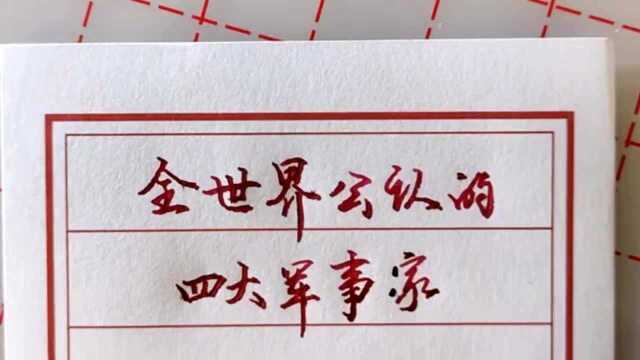 全世界公认的
四大军事家